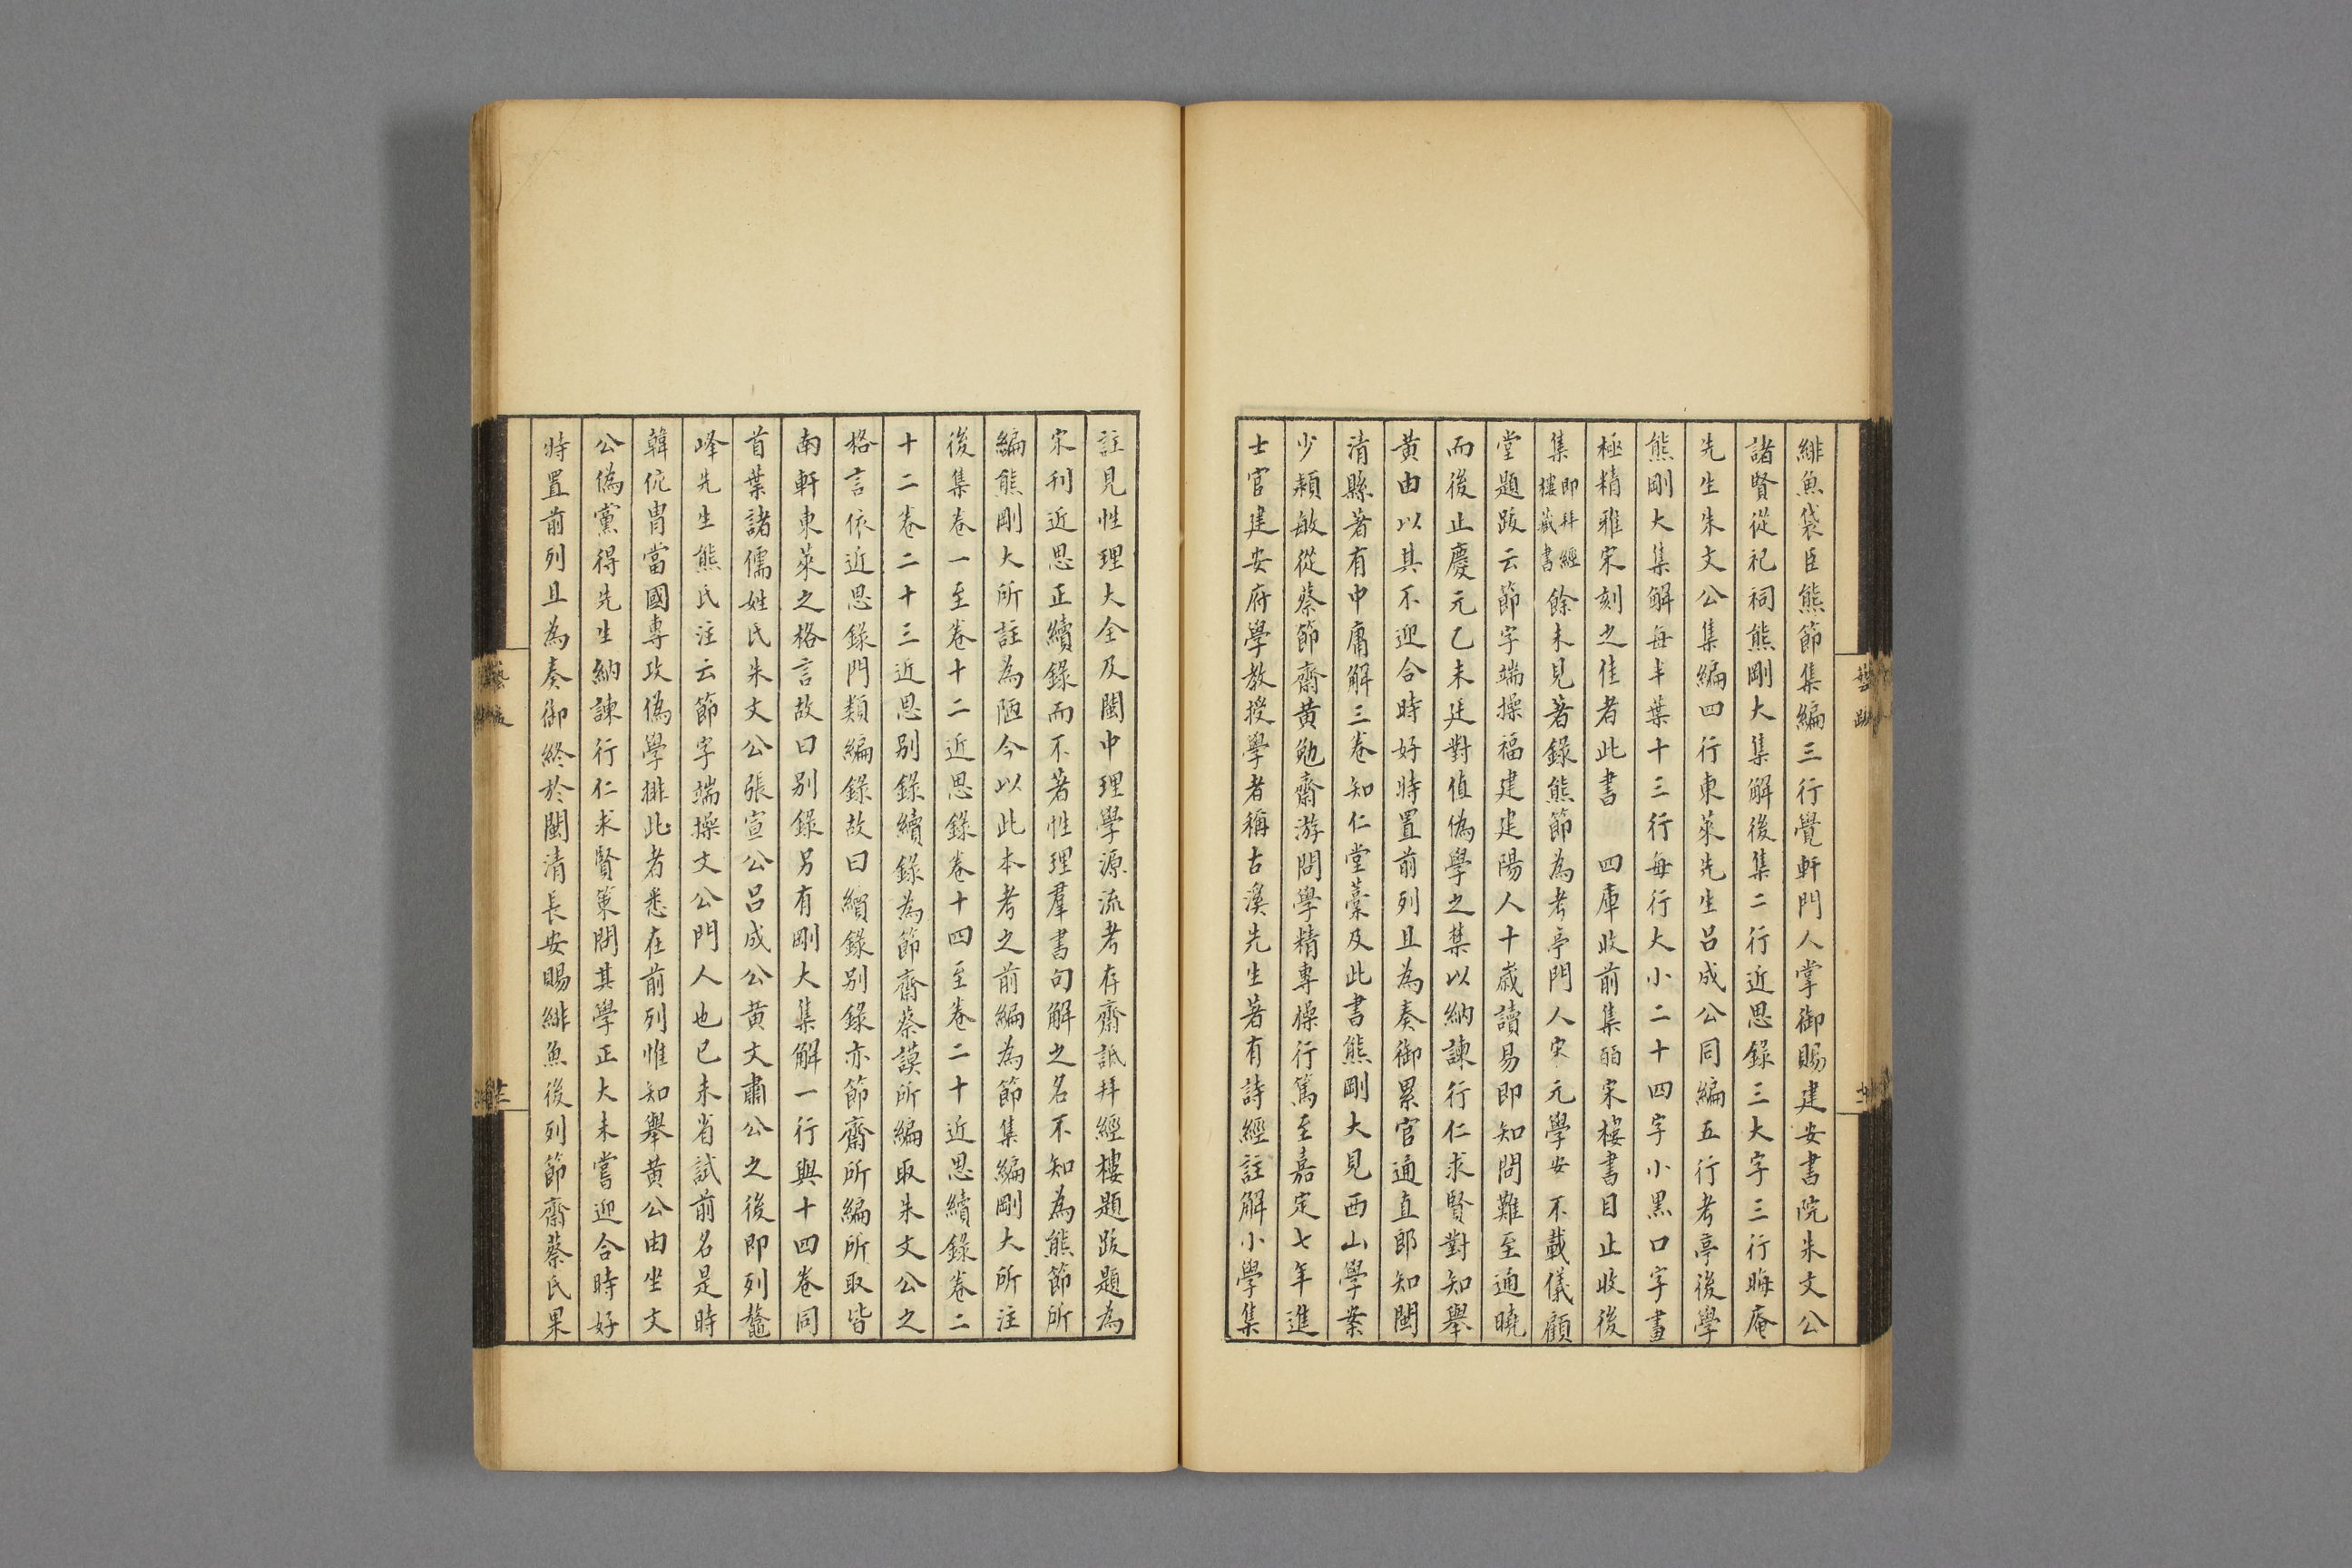 緋魚袋臣熊節集編三行覺軒門人掌御賜建安書院朱文公
諸賢從祀祠熊剛大集解後集二行近思錄三大字三行晦庵
先生朱文公集編四行東萊先生呂成公同編五行考亭後學
熊剛大集解每半葉十三行每行大小二十四字小黑口字畫
極精雅宋刻之佳者此書　四庫收前集皕宋樓書目止收後
集即拜經樓藏書餘未見著錄熊節為考亭門人宋元學安不載儀顧
堂題跋云節字端操福建建陽人十歲讀易即知問難至通曉
而後止慶元乙未廷對值偽學之禁以納諫行仁求賢對知舉
黃由以其不迎合時好特置前列且為奏御累官通直郎知閩
清縣著有中庸解三卷知仁堂藁及此書熊剛大見西山學案
少穎敏從蔡節齋黃勉齋游問學精專操行篤至嘉定七年進
士官建安府學教授學者稱古溪先生著有詩經註解小學集
註見性理大全及閩中理學源流考存齋詆拜經樓題跋題為
宋刊近思正續錄而不著性理羣書句解之名不知為熊節所
編熊剛大所註為陋今以此本考之前編為節集編剛大所注
後集卷一至卷十二近思錄卷十四至卷二十近思續錄卷二
十二卷二十三近思別錄續錄為節齋蔡謨所編取朱文公之
格言依近思錄門類編錄故曰續錄別錄亦節齋所編所取皆
南軒東萊之格言故曰別錄另有剛大集解一行與十四卷同
首葉諸儒姓氏朱文公張宣公呂成公黃文肅公之後即列鼇
峰先生熊氏注云節字端操文公門人也已未省試前名是時
韓侂冑當國專攻偽學排此者悉在前列惟知舉黃公由坐文
公偽黨得先生納諫行仁求賢策問其學正大未嘗迎合時好
特置前列且為奏御終於閩清長安賜緋魚後列節齋蔡氏果